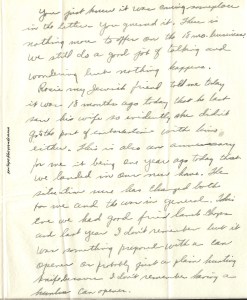 You just knew it was
in the letters You guessed it. There is
nothing more to offer on the 18 mos. business
we still do a good job of talking and
wondering but nothing happens.
Rosie my Jewish friend told me today
it was 18 months ago today that he last
saw his wife so evidently she didn't
the part of with him
either. This is also an anniversary
for me it being one year ago today that
we landed in our new home. The
situation sure has changed both
for me and the war in general. This
eve we had good fried lamb chops
and last year I don't remember but it
was something prepared with a can
opener or probably just a plain hunting
knife because I don't remember having a
can opener.